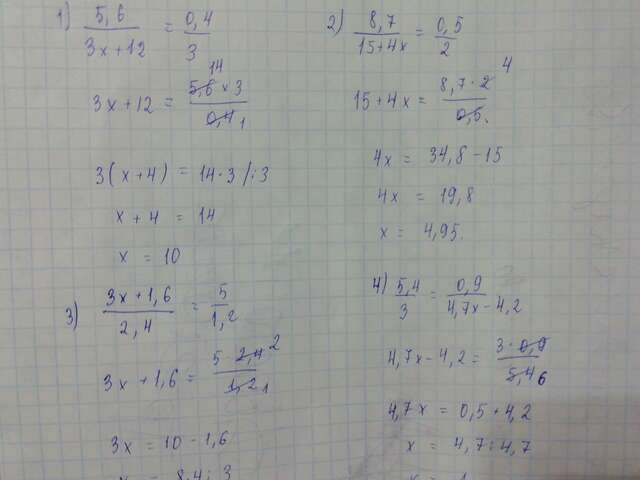 1) 5,6 / 3x+12 = 0,4 / 3
3x+12 = 5,6 × 3 / 0,4 14 1
3(x+4) = 14·3 /:3
x+4 = 14
x = 10
2) 8,7 / 15+4x = 0,5 / 2
15+4x = 8,7·2 / 0,5. 4
4x = 34,8-15
4x = 19,8
x = 4,95.
3) 3x+1,6 / 2,4 = 5 / 1,2
3x+1,6 = 5·2,4 / 1,2 2 1
3x = 10-1,6
x = 8,4:3
4) 5,4 / 3 = 0,9 / 4,7x-4,2
4,7x-4,2 = 3·0,9 / 5,4 6
4,7x = 0,5+4,2
x = 4,7:4,7
x = 1